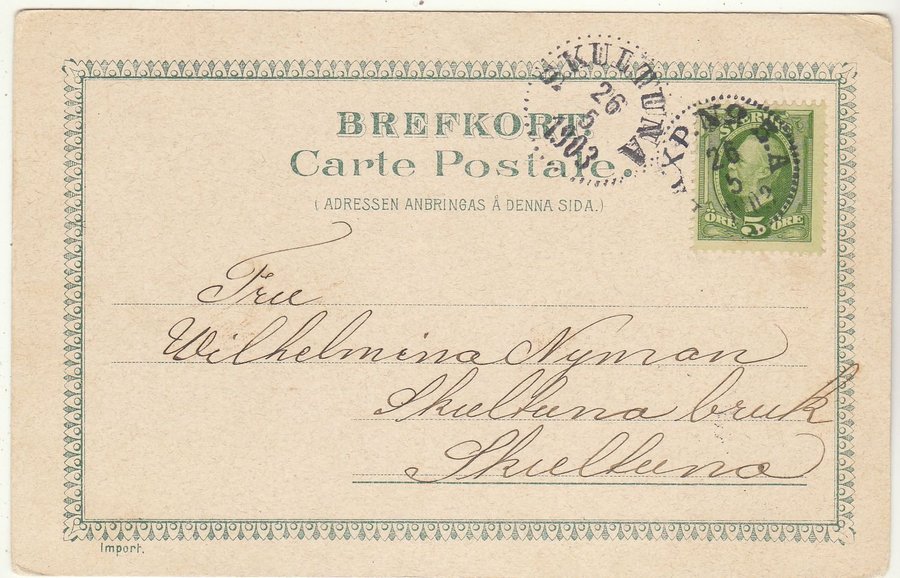 BREFKORT.
Carte Postale.
(ADRESSEN ANBRINGAS Å DENNA SIDA.)
SKULTUNA
26
5
1903
PXP.N
26
5
SVERIGE
5
ÖRE ÖRE
Fru
Wilhelmina Nyman
Skultuna bruk
Skultuna
Import.